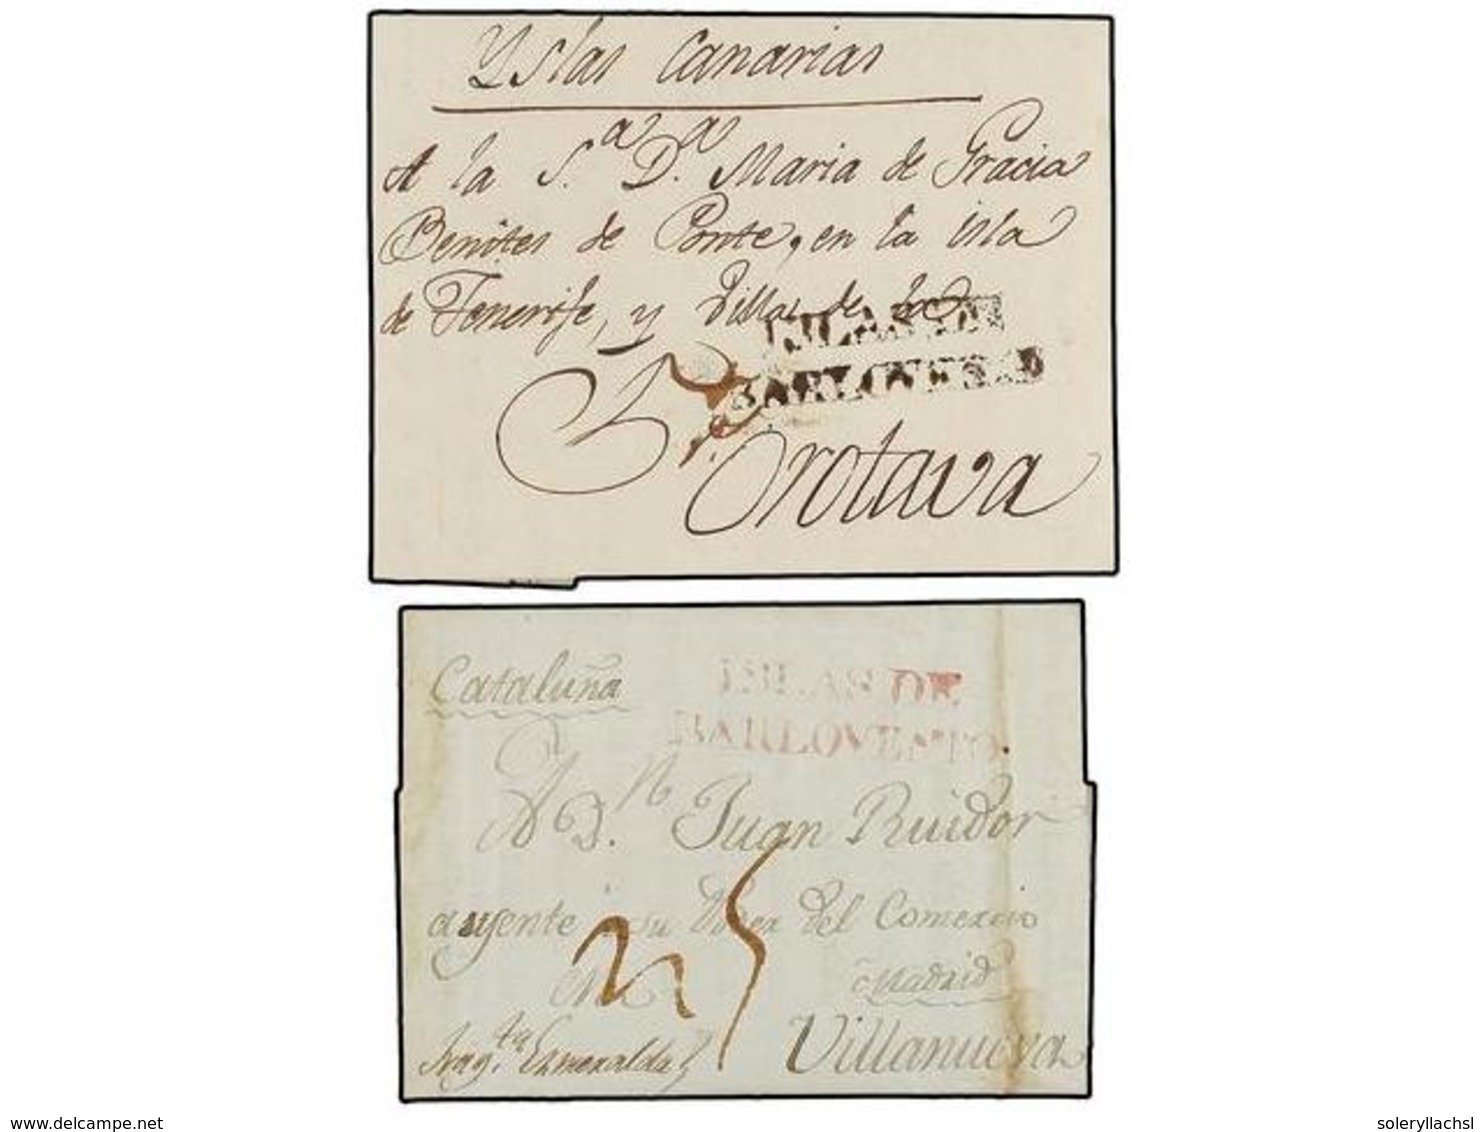 Yslas Canarias
A la S.ª D.ª Maria de Gracia
Benites de Ponte, en la isla
de Tenerife, y Villa de la
ISLAS DE
BARLOVENTO
Orotava
Cataluña
ISLAS DE
BARLOVENTO.
A D.n Juan Ruidor
ausente à su Muger del Comercio
en
Madrid
Frag.ta Esmeralda
Villanueva
www.delcampe.net
soleryllachsl